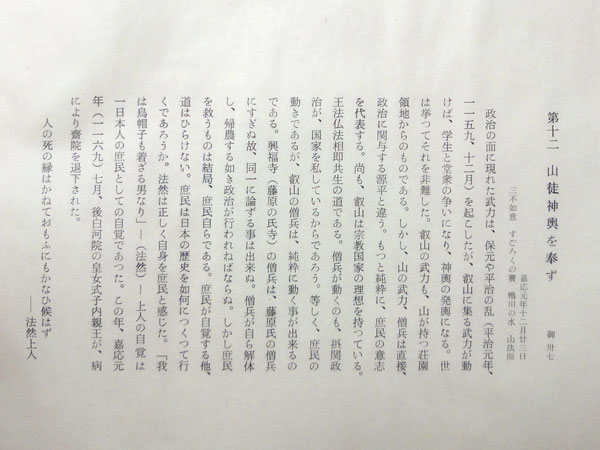 第十二　山徒神輿を奉ず
御　卅七
嘉応元年十二月廿三日
三不如意　すごろくの賽　鴨川の水　山法師
政治の面に現れた武力は、保元や平治の乱（平治元年、
一一五九、十二月）を起こしたが、叡山に集る武力が動
けば、学生と堂衆の争いになり、神輿の発輿になる。世
は挙つてそれを非難した。叡山の武力も、山が持つ荘園
領地からのものである。しかし、山の武力、僧兵は直接、
政治に関与する源平と違う。もっと純粋に、庶民の意志
を代表する。尚も、叡山は宗教国家の理想を持つている。
王法仏法相即共生の道である。僧兵が動くのも、摂関政
治が、国家を私しているからであろう。等しく、庶民の
動きであるが、叡山の僧兵は、純粋に動く事が出来るの
である。興福寺（藤原の氏寺）の僧兵は、藤原氏の僧兵
にすぎぬ故、同一に論ずる事は出来ぬ。僧兵が自ら解体
し、帰農する如き政治が行われねばならぬ。しかし庶民
を救うものは結局、庶民自らである。庶民が自覚する他、
道はひらけない。庶民は日本の歴史を如何につくつて行
くであろうか。法然は正しく自身を庶民と感じた。「我
は烏帽子も着ざる男なり」―（法然）―上人の自覚は
一日本人の庶民としての自覚であつた。この年、嘉応元
年（一一六九）七月、後白河院の皇女式子内親王が、病
により斎院を退下された。
人の死の縁はかねておもふにもかなひ候はず
――法然上人